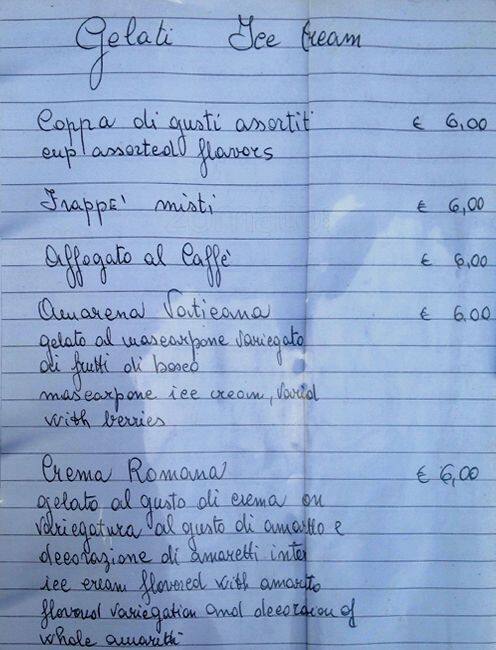 Gelati Ice Cream
Coppa di gusti assortit € 6,00
cup assorted flavors
Frappe' misti € 6,00
Affogato al Caffè € 6,00
Amarena Vaticana € 6,00
gelato al mascarpone variegato
di frutti di bosco
mascarpone ice cream, varid
with berries
Crema Romana € 6,00
gelato al gusto di crema on
variegatura al gusto di amaretto e
decorazione di amaretti inter
ice cream flavored with amarito
flavored variegation and decoraion of
whole amaretti